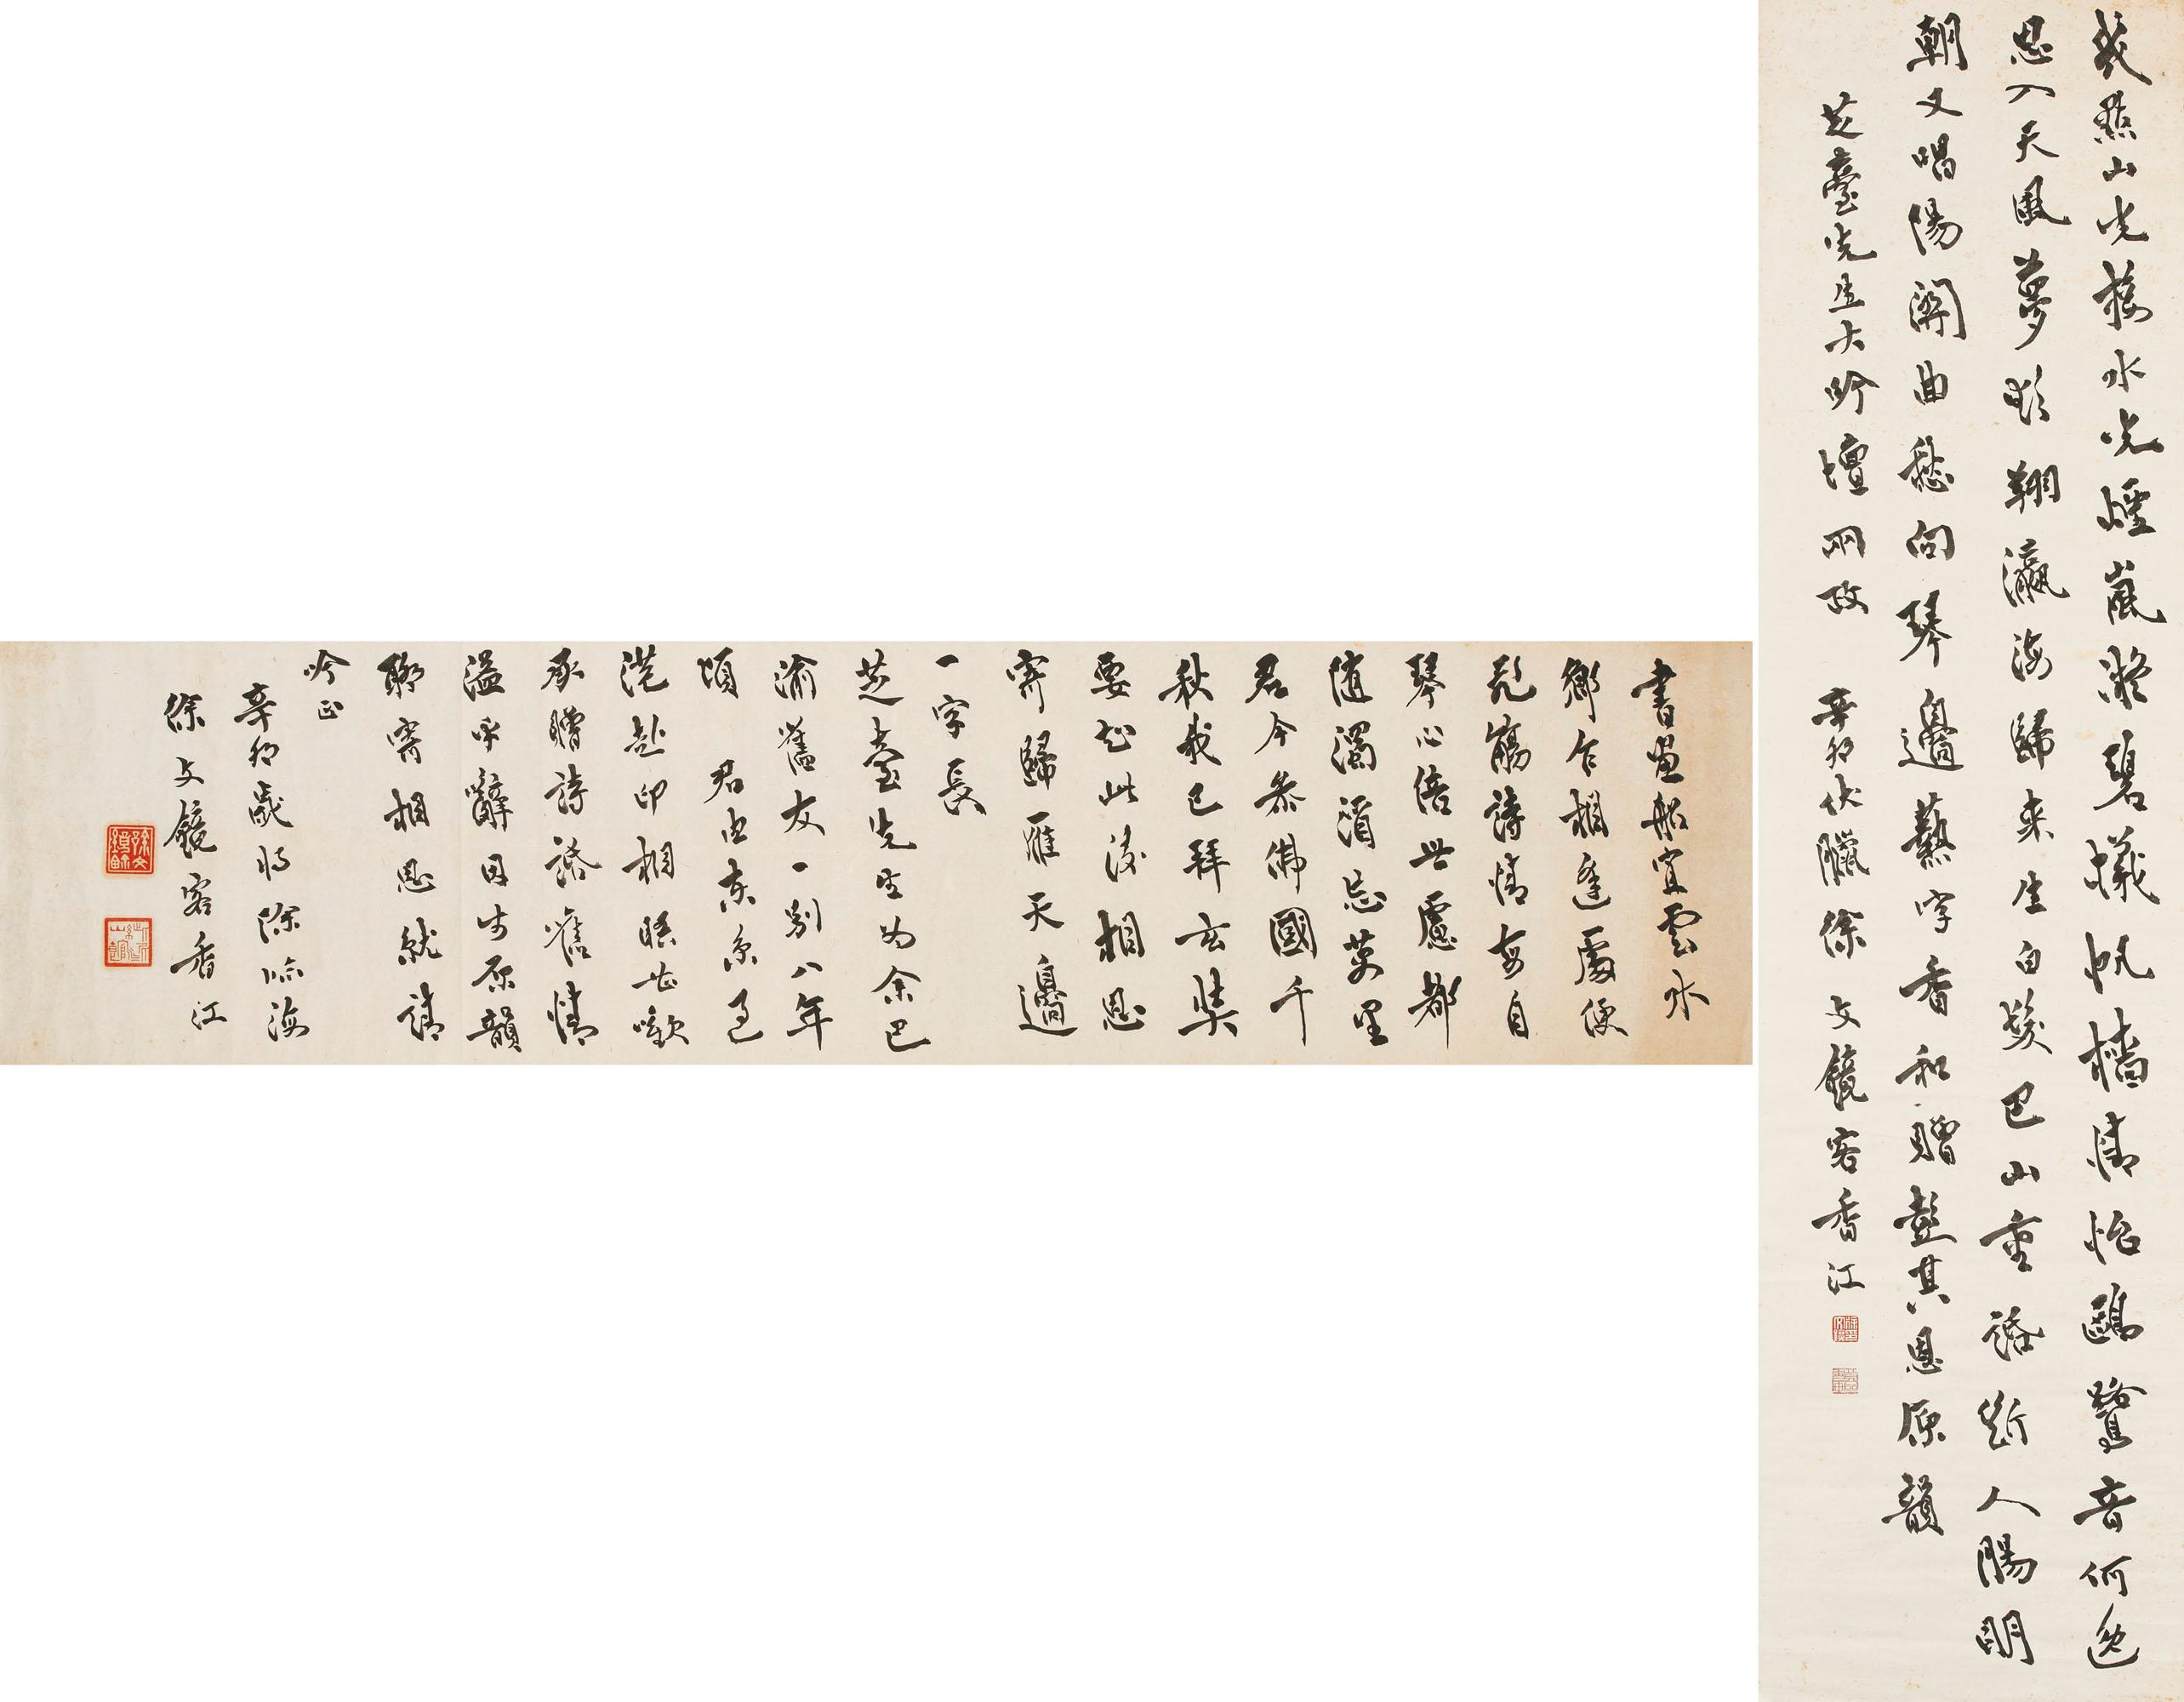 幾點山光接水光煙嵐凝碧檥帆檣情怡鷗鷺音何逸
思入天風夢欲翔瀛海歸來生白髮巴山重話斷人腸明
朝又唱陽關曲愁向琴邊爇字香 和贈其恩原韻
芝臺先生大吟壇兩政 辛卯伏臘徐文鏡客香江
書畫船宜雲水
鄉乍相逢處便
飛觴詩情每自
琴心倍世慮都
隨濁渭忘萬里
君今參佛國千
秋我已拜玄奘
要知此後相思
寄歸雁天邊
一字長
芝臺先生為余巴
渝舊友一別八年
頃 君由東京過
港赴印相晤甚歡
承贈詩話舊情
溢乎辭因步原韻
聊寄相思就請
吟正
辛卯歲將除臨海
徐文鏡客香江